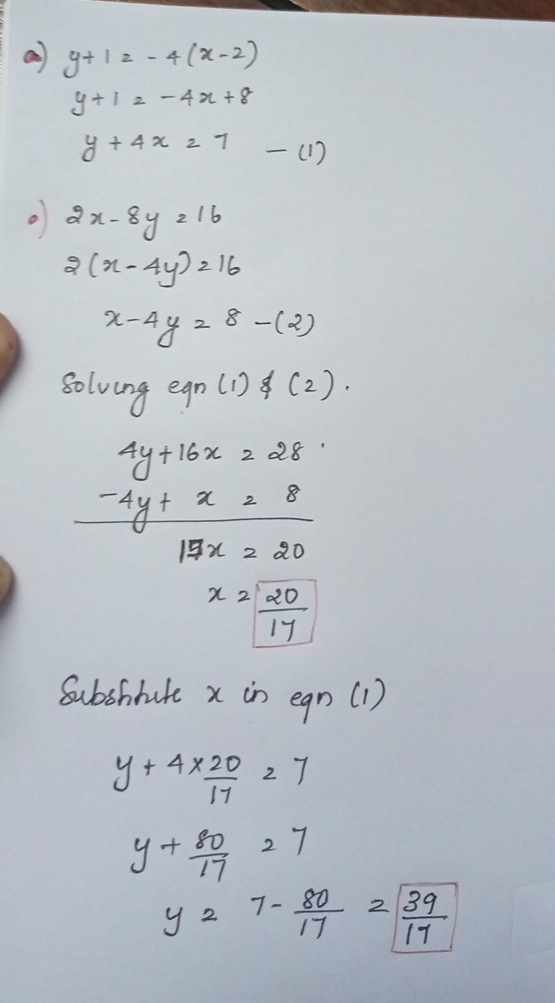 a) y+1 = -4(x-2)
y+1 = -4x+8
y + 4x = 7 - (1)
o) 2x - 8y = 16
2(x-4y) = 16
x-4y = 8 - (2)
Solving eqn (1) & (2).
4y+16x = 28
-4y + x = 8
17x = 20
x = 20/17
Substitute x in eqn (1)
y + 4 × 20/17 = 7
y + 80/17 = 7
y = 7 - 80/17 = 39/17